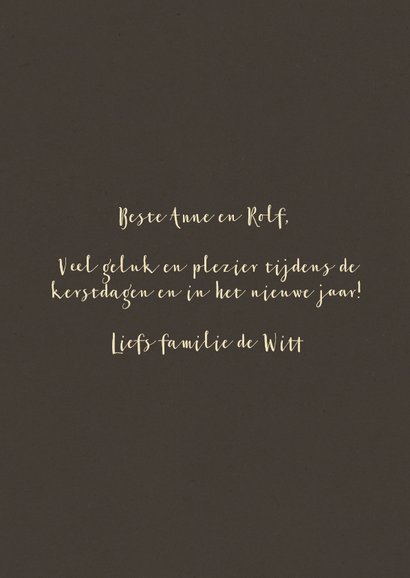 Beste Anne en Rolf,
Veel geluk en plezier tijdens de
kerstdagen en in het nieuwe jaar!
Liefs familie de Witt